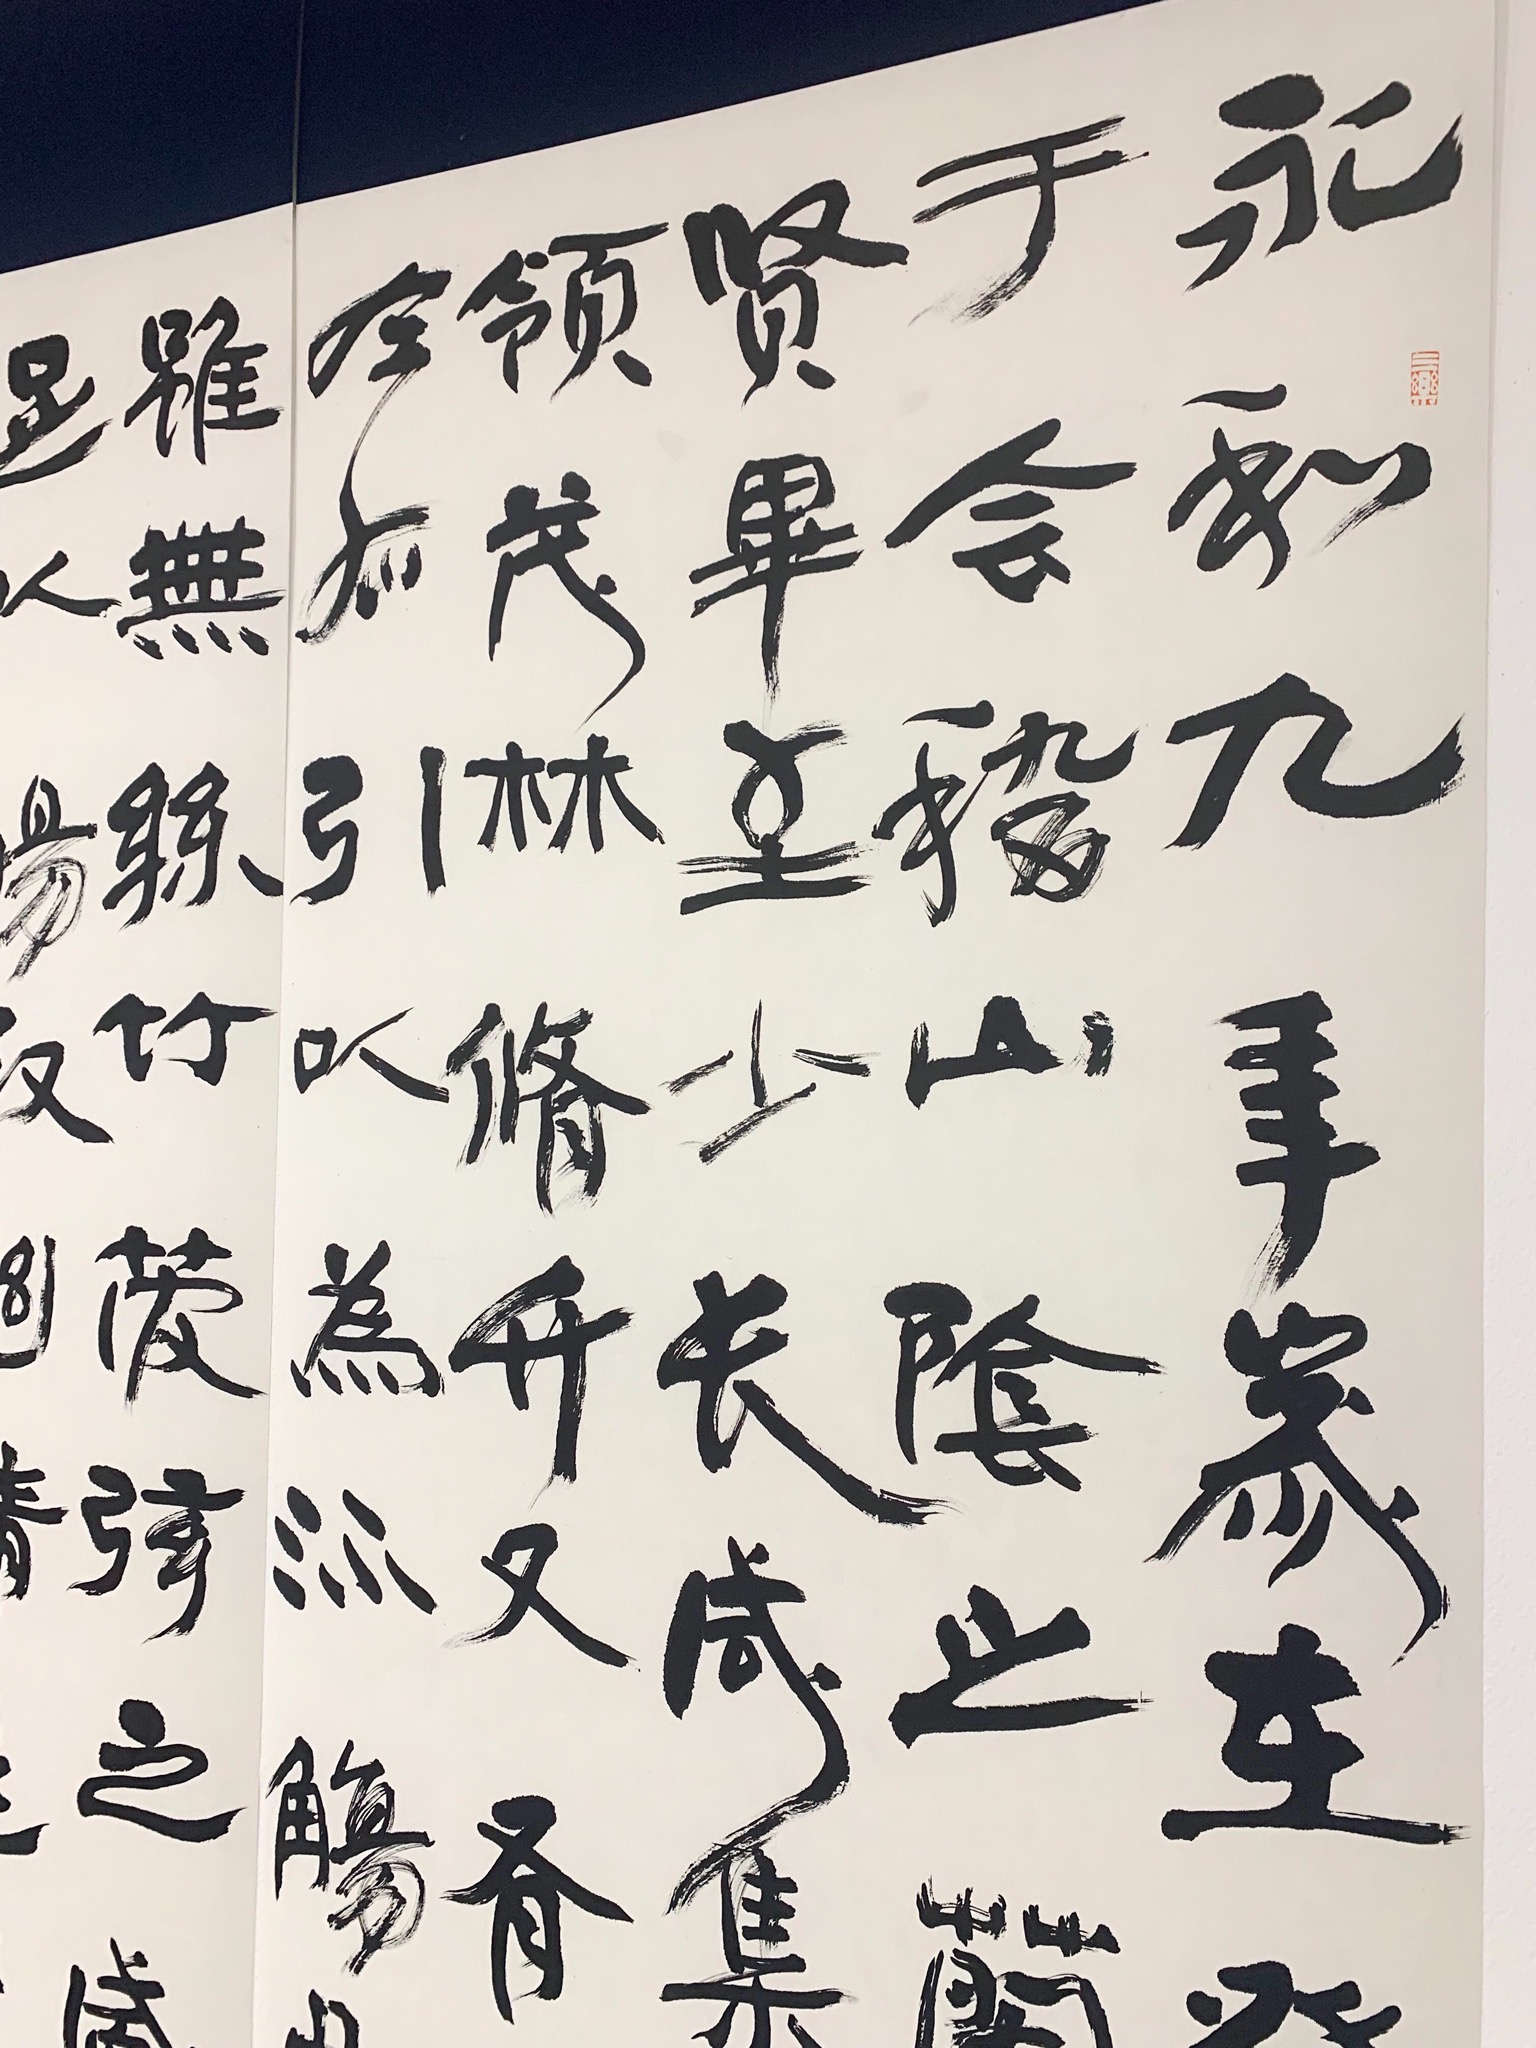 永和九年歲在癸
于会稽山陰之蘭
贤畢至少长咸集
領茂林脩竹又有
左右引以為流觴曲
雖無絲竹管弦之盛
足以暢叙幽情是